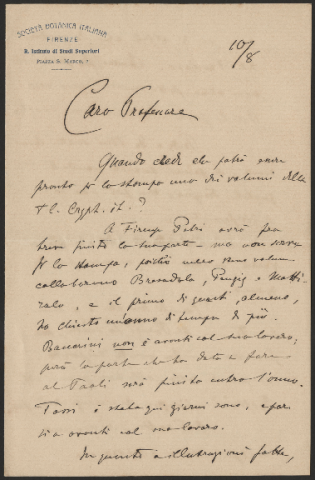 SOCIETÀ BOTANICA ITALIANA
FIRENZE
R. Istituto di Studi Superiori
PIAZZA S. MARCO, 2
10/8
Caro Professore
Quando crede che potrà essere
pronto p lo stampa uno dei volumi della
Fl. Crypt. it.?
A Firenze Petri avrà fra
breve finito la sua parte — ma non serve
p la stampa, poiché nello stesso volume
collaborano Bresadola, Penzig e Matti-
rolo, e il primo di questi, almeno,
ha chiesto un anno di tempo di più.
Baccarini non è avanti col suo lavoro;
però la parte che ha dato a fare
al Paoli sarà finita entro l'anno.
è stato qui giorni sono, e par-
mi avanti col suo lavoro.
In quanto a illustrazioni fatte,